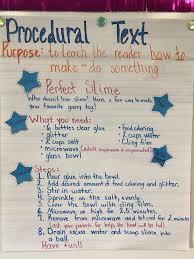 Procedural Text
Purpose: to teach the reader how to
make or do something
Perfect Slime
Who doesn't love slime? Here is a fun way to make
your favorite gooey toy!
What you need:
6 bottles clear glue
food coloring
glitter
2 cups water
salt
cling film
microwave (adult supervision is recommended)
glass bowl
Steps:
1. Pour glue into the bowl.
2. Add desired amount of food coloring and glitter.
3. Stir in water.
4. Sprinkle on the salt evenly.
5. Cover the bowl with cling film.
6. Microwave on high for 2.5 minutes.
7. Remove from microwave and let cool for 2 minutes
Let your parents for help the bowl will be hot!
8. Drain excess water and scoop slime into
a ball.
Have fun!!